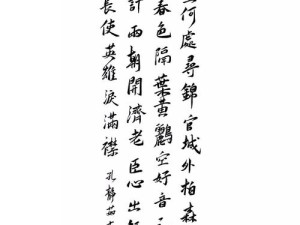 何處尋錦官城外柏森
春色隔葉黃鸝空好音
計兩朝開濟老臣心出
長使英雄淚滿襟 孔靜茹